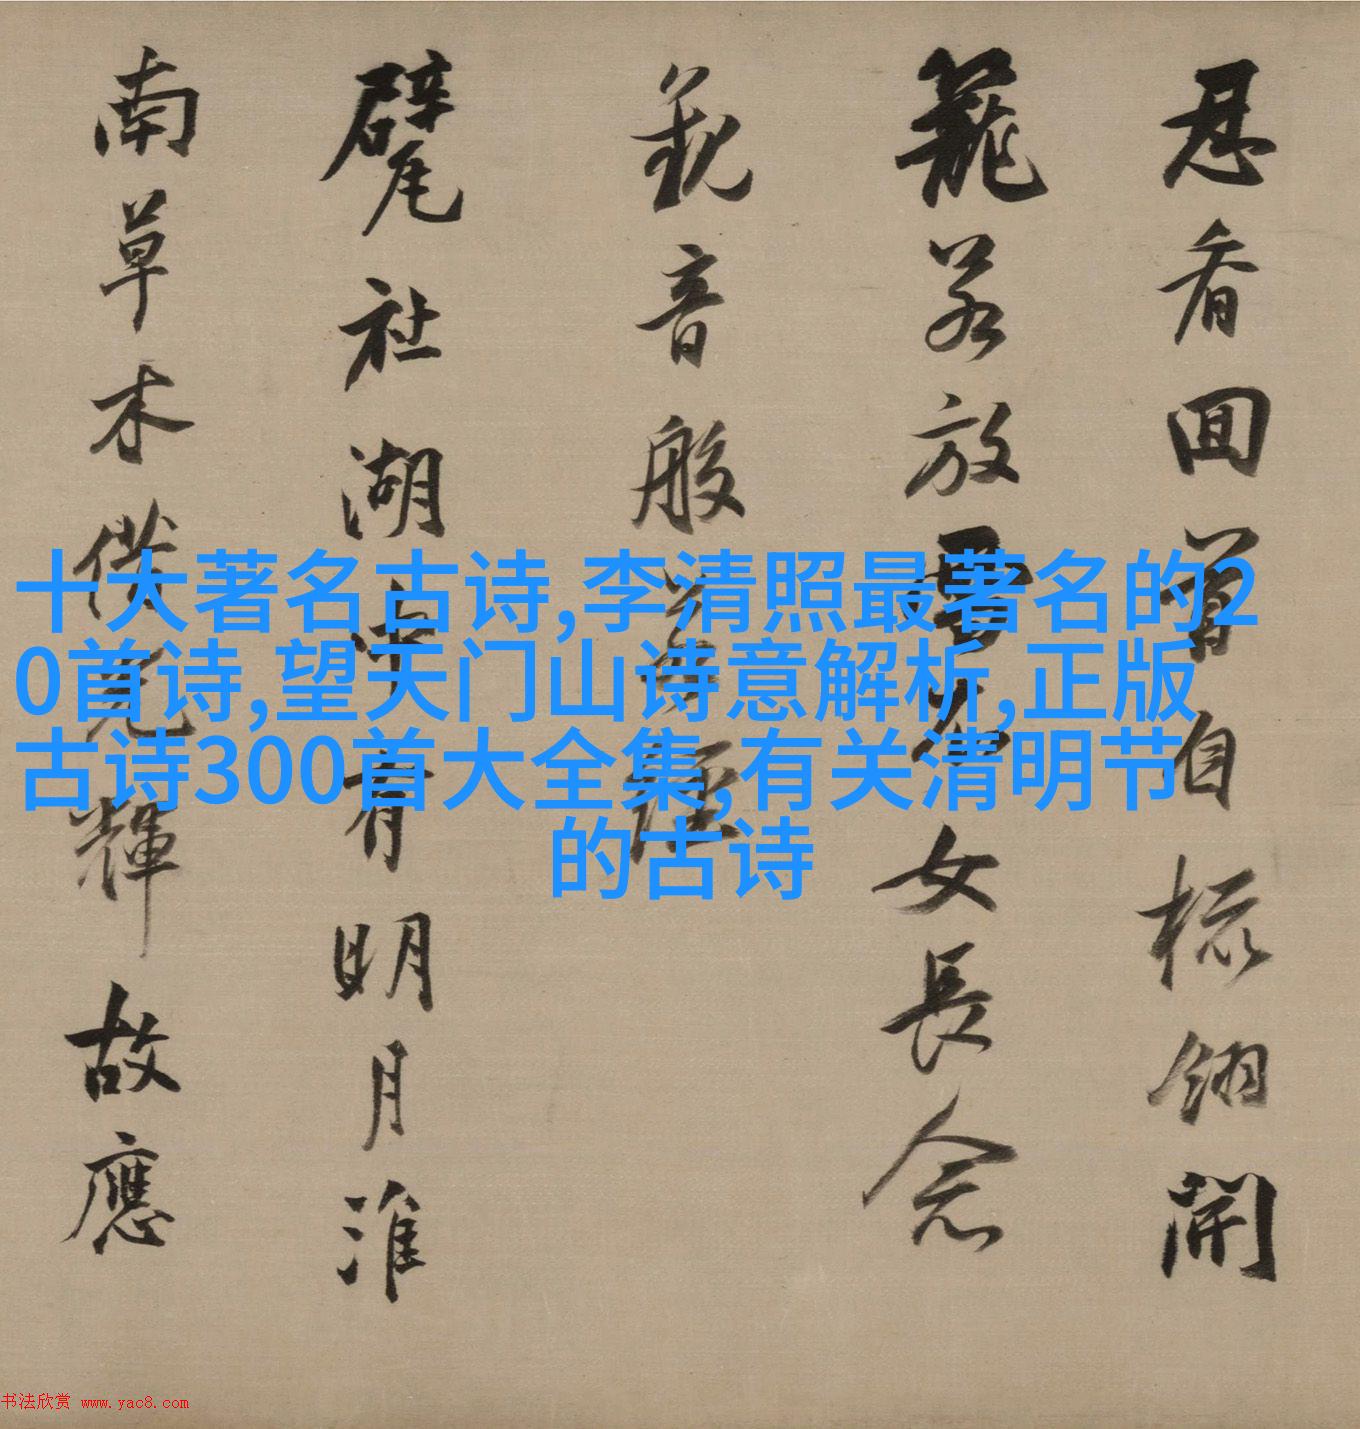 忍看囬首自梳翎開
籠若放雪衣女長念
觀音般若經
甓社湖中有明月淮
南草木借光輝故應
十大著名古诗,李清照最著名的2
0首诗,望天门山诗意解析,正版
古诗300首大全集,有关清明节
的古诗
书法欣赏 www.yac8.com